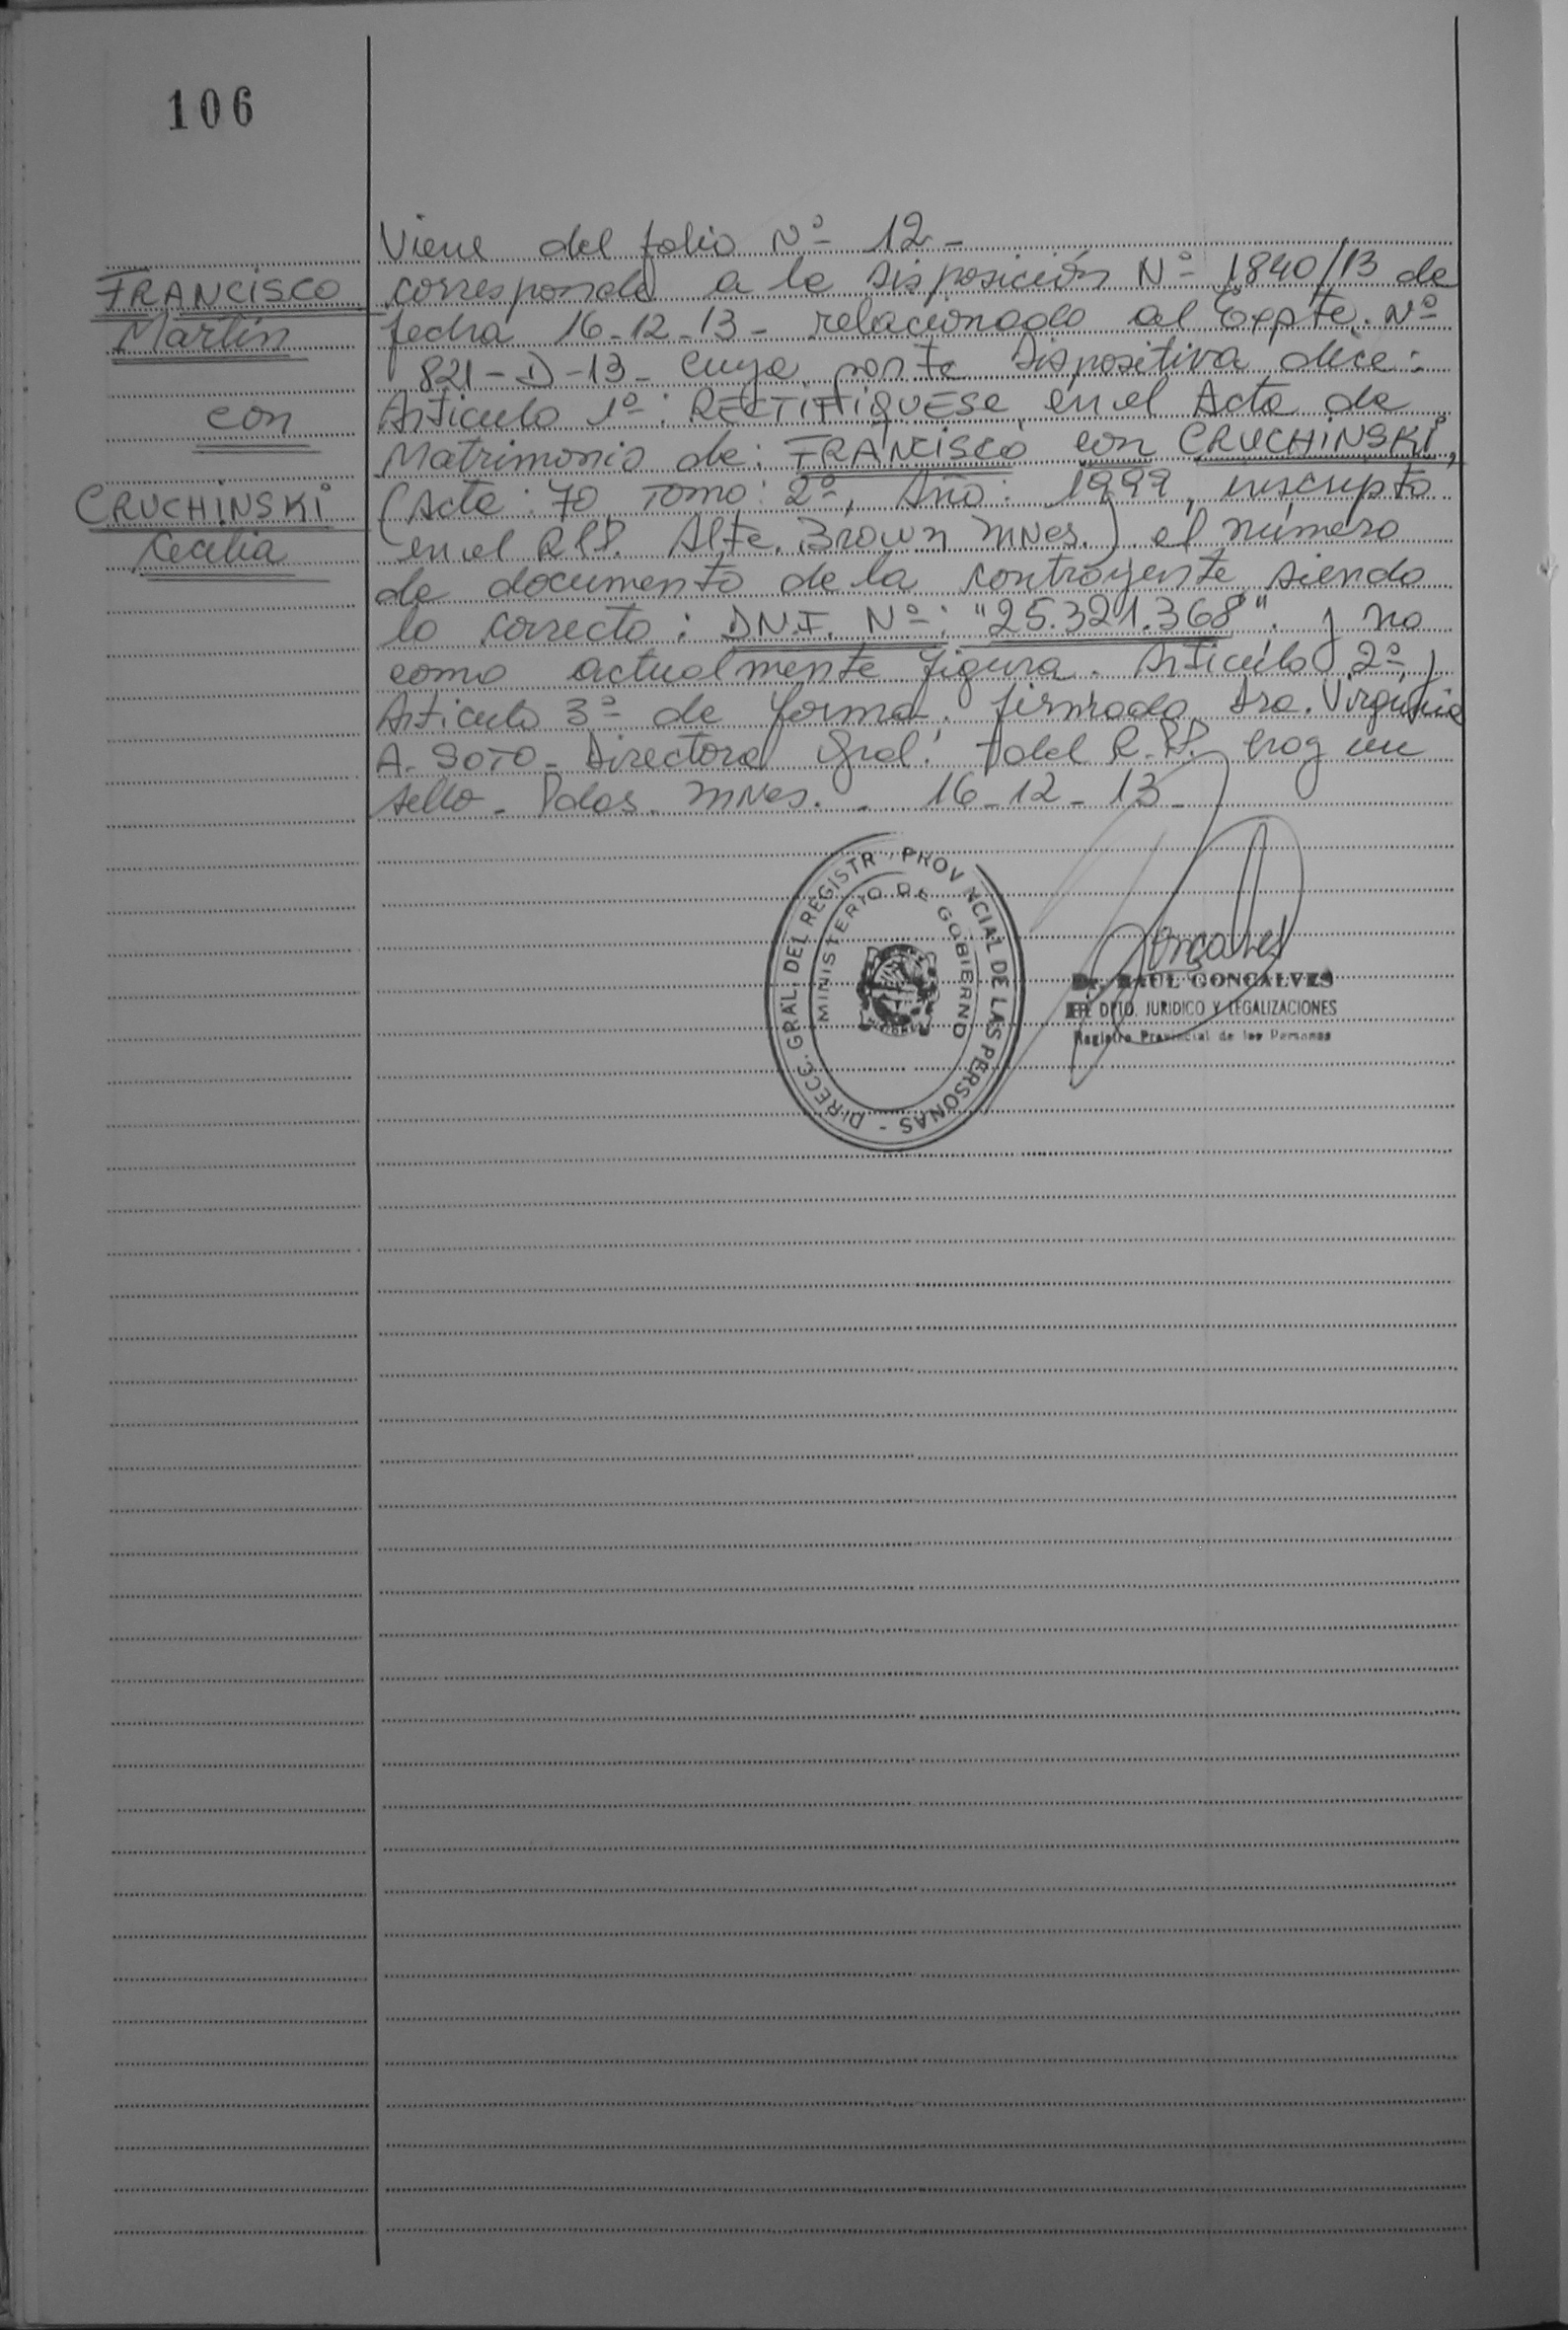 106
FRANCISCO
Martin
con
CRUCHINSKI
Cecilia
Viene del folio Nº 12-
corresponde a la disposición Nº 1840/13 de
fecha 16-12-13- relacionado al Expte. Nº
821-D-13- cuya parte dispositiva dice:
Articulo 1º: RECTIFIQUESE en el Acta de
Matrimonio de: FRANCISCO con CRUCHINSKI,
(Acta: 70, Tomo: 2º, Año: 1999, inscripto
en el R.P.P. Alte. Brown Mnes.) el número
de documento de la contrayente siendo
lo correcto: D.N.I. Nº: "25.321.368". y no
como actualmente figura. Articulo 2º y
Articulo 3º de forma. firmado Dra. Virginia
A. SOTO- Directora Gral. del R.P.P. hay un
sello- Pdas. Mnes. - 16-12-13-
DIRECC. GRAL. DEL REGISTR PROV NCIAL DE LAS PERSONAS -
MINISTERIO DE GOBIERNO
Goncalves
Dr. RAUL GONCALVES
JEFE DPTO. JURIDICO Y LEGALIZACIONES
Registro Provincial de las Personas